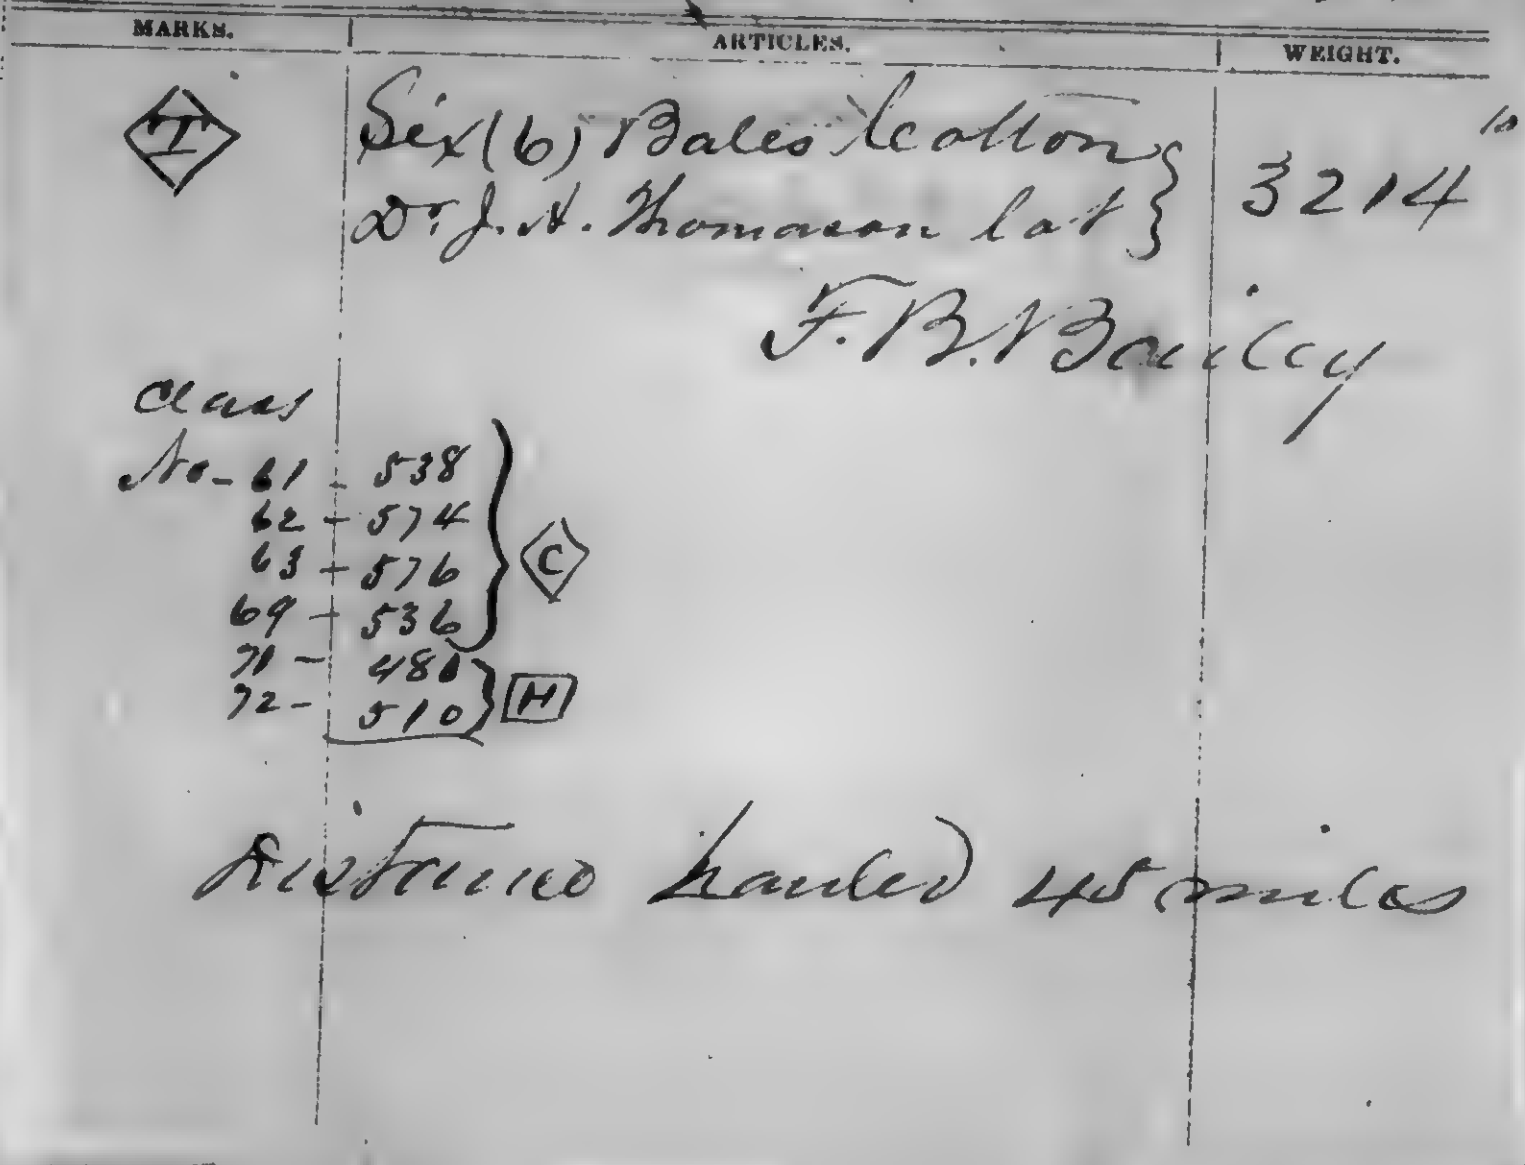 MARKS. ARTICLES. WEIGHT.
T Six (6) Bales Cotton } 3214
Dr. J. A. Thomason lot
F. B. Bailey
Class
No - 61 - 538
62 - 574
63 - 576 } C
69 - 536
71 - 480 } H
72 - 510
Distance hauled 45 miles